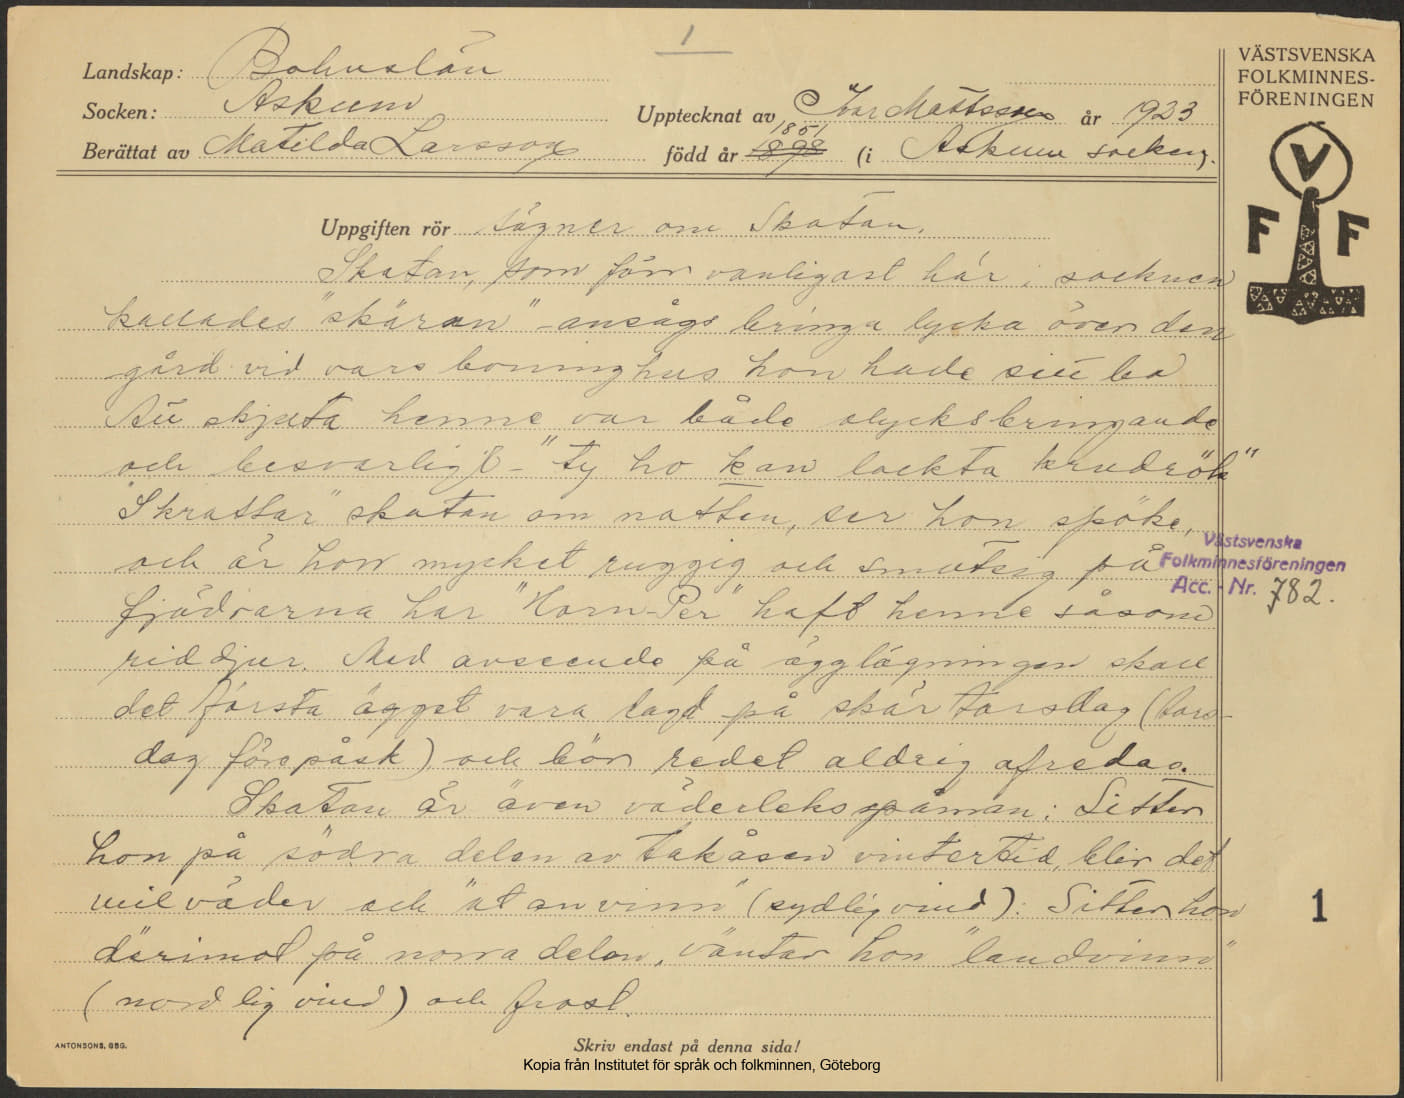 1
VÄSTSVENSKA
FOLKMINNES-
FÖRENINGEN
V
F F
Landskap: Bohuslän
Socken: Askum
Upptecknat av Ivar Mattsson år 1923
1851
Berättat av Matilda Larsson född år 1898 (i Askum socken).
Uppgiften rör Sägner om Skatan.
Skatan, som förr vanligast här i socknen
kallades "skäran" - ansågs bringa lycka över den
gård vid vars boninghus hon hade sitt bo
Att skjuta henne var både olycksbringande
och besvärligt - "ty ho kan lockta krudrök"
"Skrattar" skatan om natten, ser hon spöke,
och är hon mycket ruggig och smutsig på
fjädrarna har "Horn-Per" haft henne såsom
riddjur. Med avseende på äggläggningen skall
det första ägget vara lagd på skär torsdag (tors-
dag före påsk) och bör redet aldrig afredas.
Skatan är även väderleksspåman: Sitter
hon på södra delen av takåsen vintertid, blir det
milväder och "utanvinn" (sydlig vind): Sitter hon
därimot på norra delen, väntar hon "landvinn"
(nordlig vind) och frost.
Västsvenska
Folkminnesföreningen
Acc. - Nr. 782.
1
ANTONSONS, GBG.
Skriv endast på denna sida!
Kopia från Institutet för språk och folkminnen, Göteborg